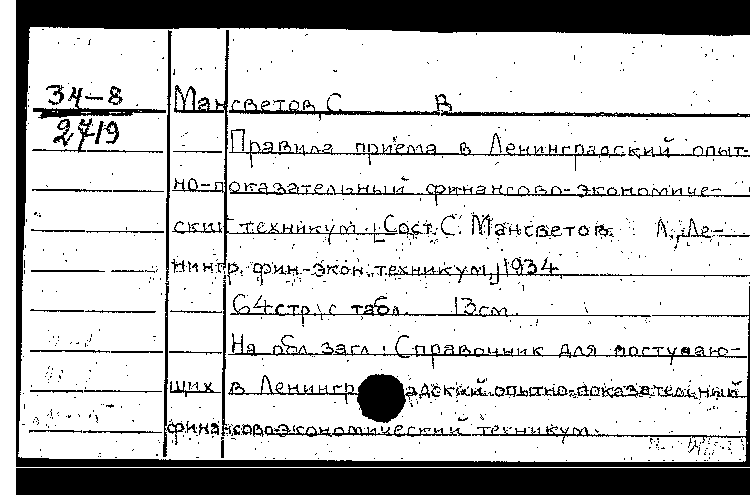 34-8
2719
Мансветов, С В
Правила приёма в Ленинградский опыт-
но-показательный финансово-экономиче-
ский техникум. [Сост. С. Мансветов. Л., Ле-
нингр. фин-экон. техникум,] 1934
64 стр. с табл. 13 см.
На обл. загл.: Справочник для поступаю-
щих в Ленинградский опытно-показательный
финансово-экономический техникум.